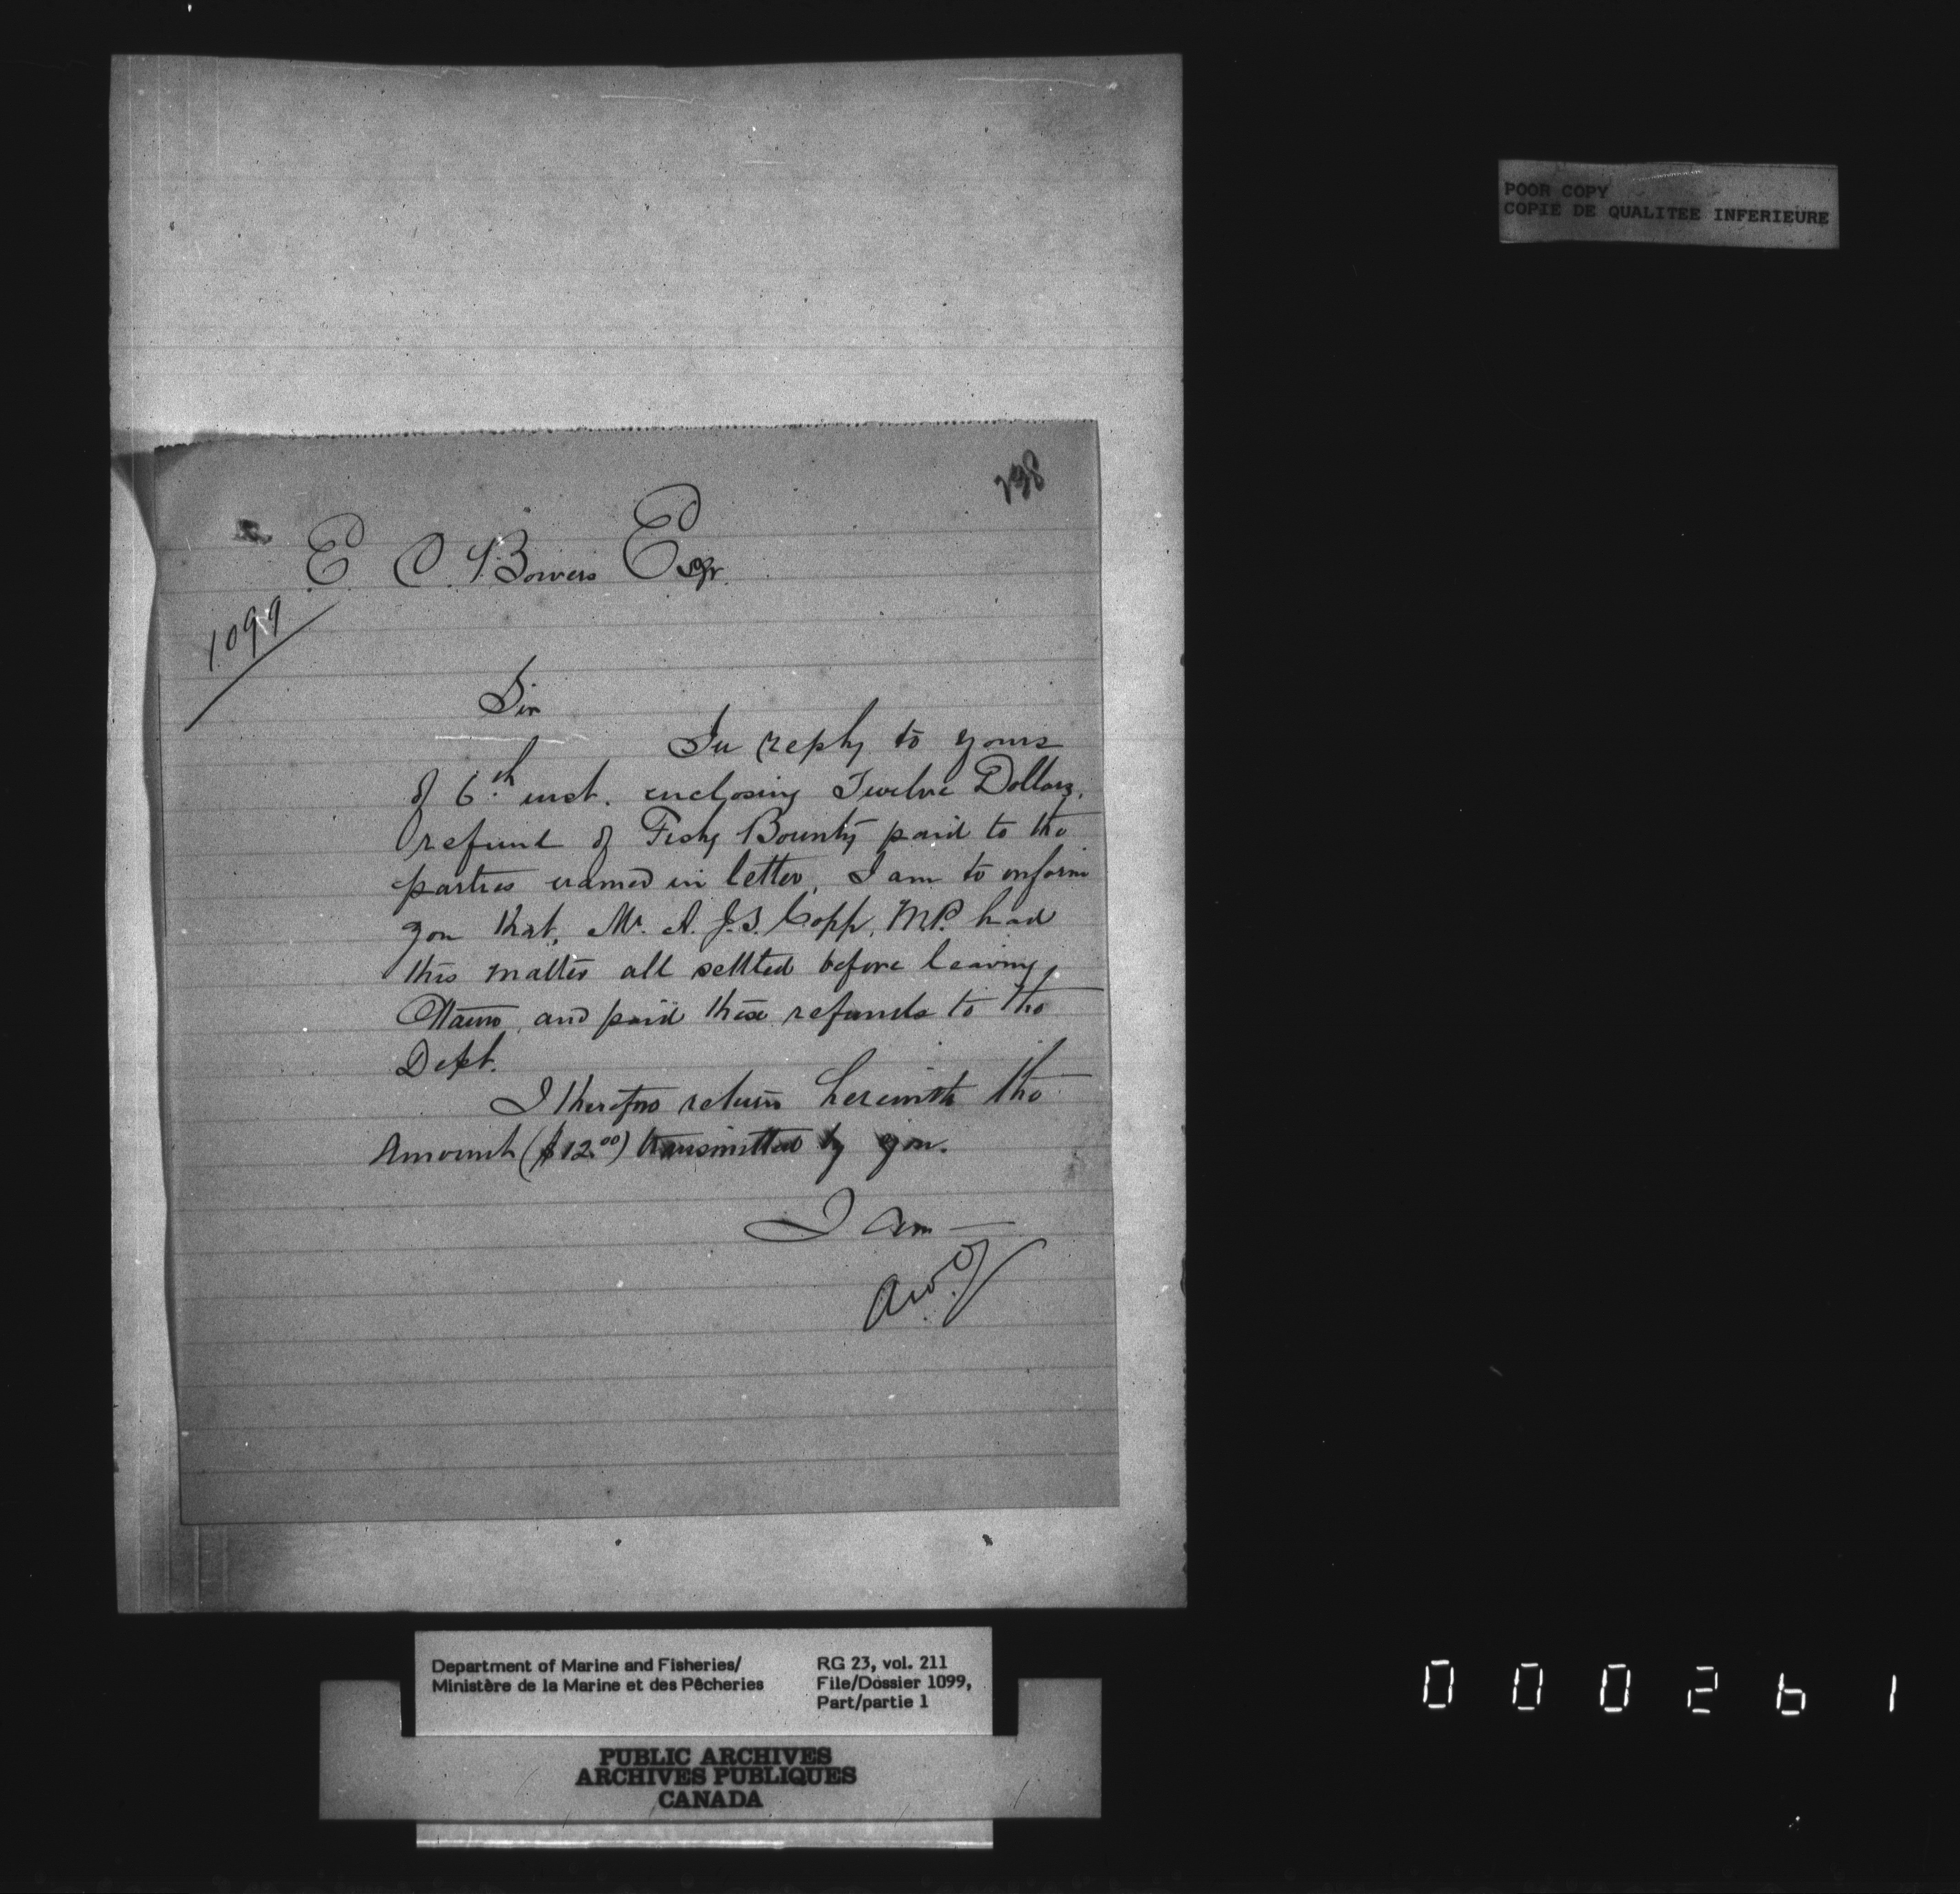 POOR COPY
COPIE DE QUALITEE INFERIEURE
238
E C. Bowers Esqr.
1099
Sir
In reply to yours
of 6th inst. enclosing Twelve Dollars,
refund of Fishy Bounty paid to the
parties named in letter, I am to inform
you that, Mr. A. J. S. Copp, M.P. had
this matter all settled before leaving
Ottawa, and paid these refunds to the
Dept.
I therefore return herewith the
Amount ($12.00) transmitted by you.
I am —
Department of Marine and Fisheries/
Ministère de la Marine et des Pêcheries
RG 23, vol. 211
File/Dossier 1099,
Part/partie 1
PUBLIC ARCHIVES
ARCHIVES PUBLIQUES
CANADA
000261